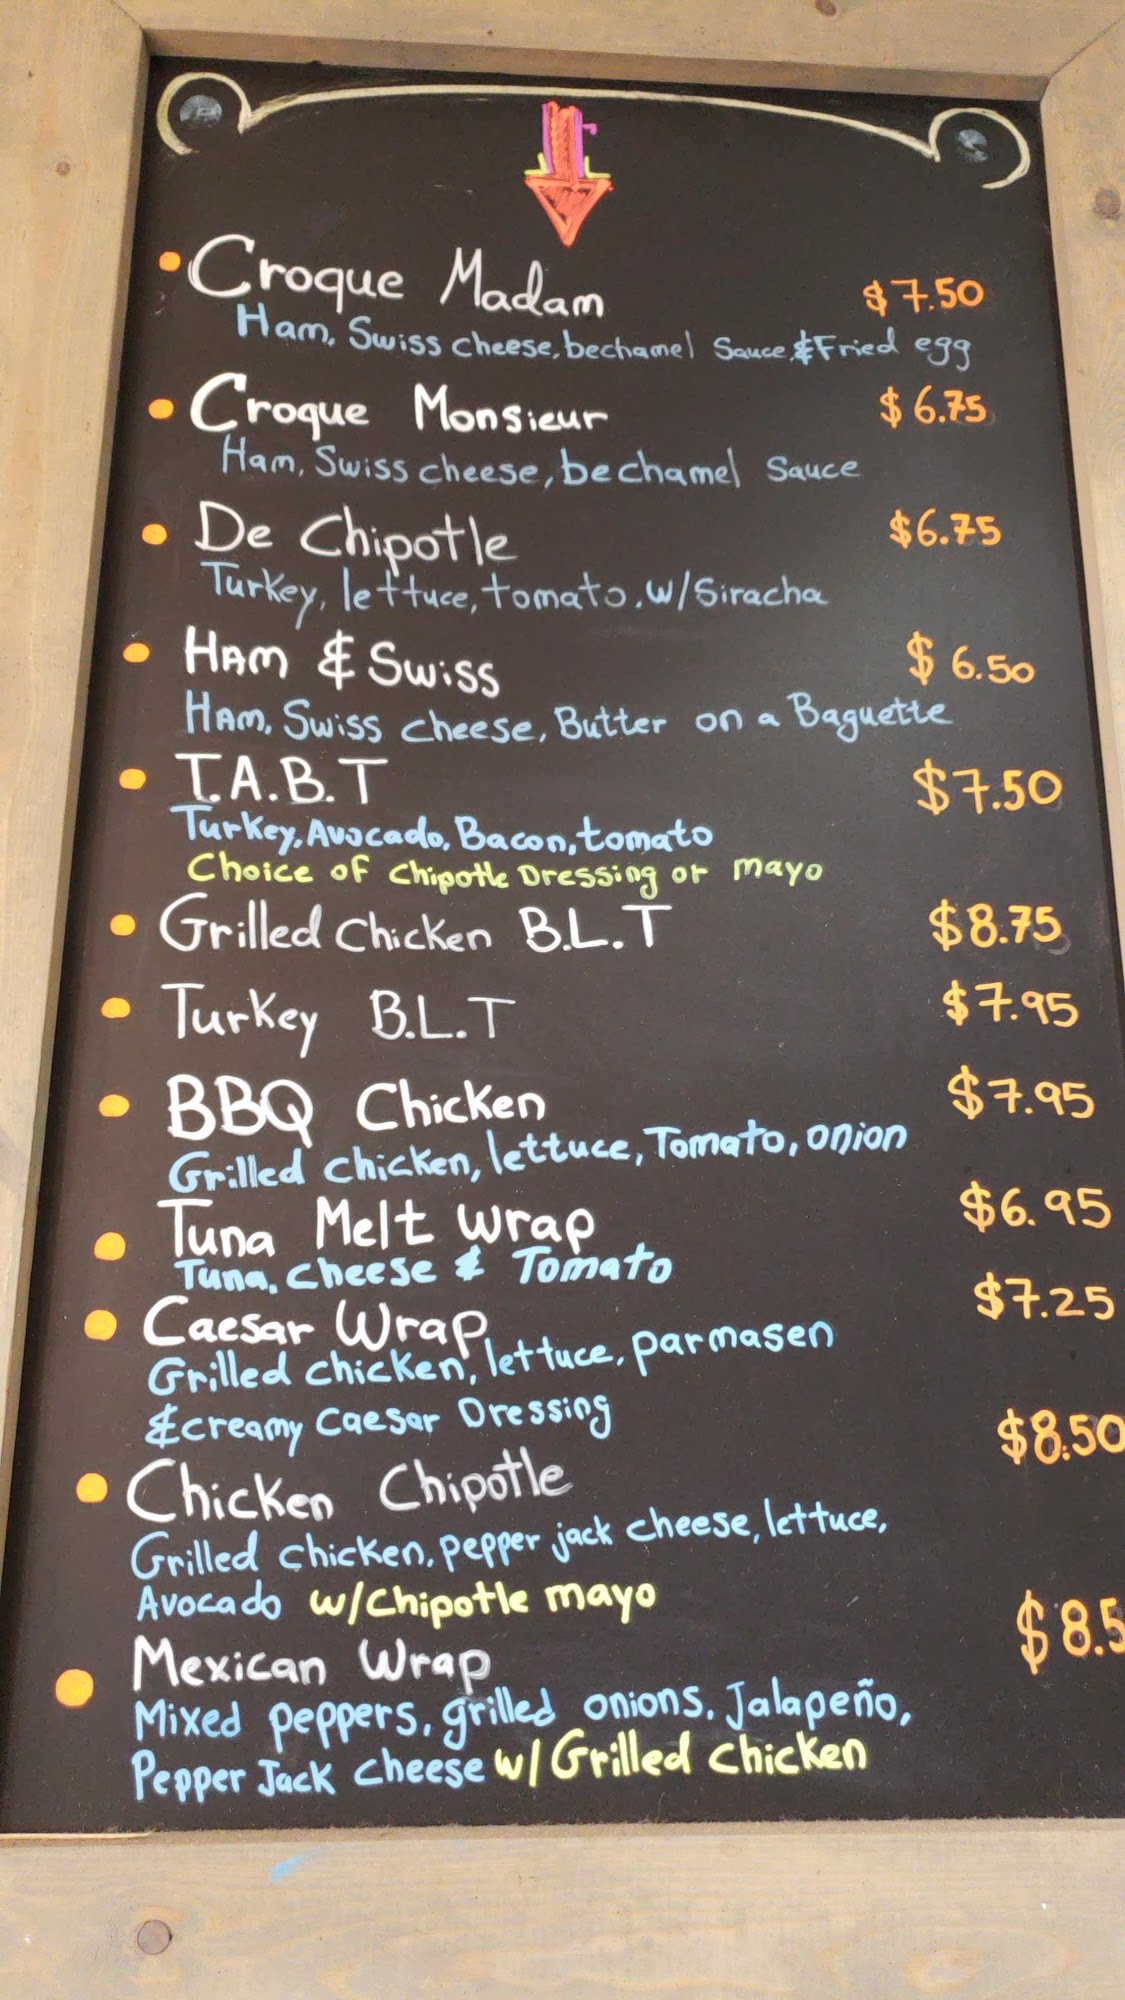 Croque Madam $7.50
Ham, Swiss cheese, bechamel Sauce, & Fried egg
Croque Monsieur $6.75
Ham, Swiss cheese, bechamel Sauce
De Chipotle $6.75
Turkey, lettuce, tomato, w/Siracha
HAM & Swiss $6.50
HAM, Swiss cheese, Butter on a Baguette
T.A.B.T $7.50
Turkey, Avocado, Bacon, tomato
Choice of Chipotle Dressing or mayo
Grilled Chicken B.L.T $8.75
Turkey B.L.T $7.95
BBQ Chicken $7.95
Grilled chicken, lettuce, Tomato, onion
Tuna Melt Wrap $6.95
Tuna, cheese & Tomato
Caesar Wrap $7.25
Grilled chicken, lettuce, parmasen
& creamy Caesar Dressing
Chicken Chipotle $8.50
Grilled chicken, pepper jack cheese, lettuce,
Avocado w/Chipotle mayo
Mexican Wrap $8.5
Mixed peppers, grilled onions, Jalapeño,
Pepper Jack cheese w/ Grilled chicken